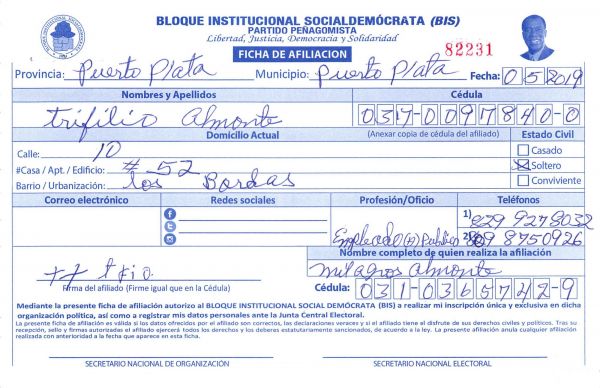 BLOQUE INSTITUCIONAL SOCIALDEMÓCRATA (BIS)
PARTIDO PEÑAGOMISTA
Libertad, Justicia, Democracia y Solidaridad
FICHA DE AFILIACION
82231
Provincia: Puerto Plata Municipio: Puerto Plata Fecha: 05 2019
Nombres y Apellidos Cédula
trifilio Almonte 037-0097840-0
Domicilio Actual (Anexar copia de cédula del afiliado) Estado Civil
Calle: 10 Casado
#Casa / Apt. / Edificio: # 52 Soltero
Barrio / Urbanización: los Bordas Conviviente
Correo electrónico Redes sociales Profesión/Oficio Teléfonos
1) 829 9278032
Empleado (a) Publico 2) 809 8750926
Nombre completo de quien realiza la afiliación
milagros almonte
Firma del afiliado (Firme igual que en la Cédula) Cédula: 031-0365742-9
Mediante la presente ficha de afiliación autorizo al BLOQUE INSTITUCIONAL SOCIAL DEMÓCRATA (BIS) a realizar mi inscripción única y exclusiva en dicha
organización política, así como a registrar mis datos personales ante la Junta Central Electoral.
La presente ficha de afiliación es válida si los datos ofrecidos por el afiliado son correctos, las declaraciones veraces y si el afiliado tiene al disfrute de sus derechos civiles y políticos. Tras su
recepción, sello y firmas autorizadas el afiliado ejercerá todos los derechos y los deberes estatutariamente sancionados, de acuerdo a la ley. La presente afiliación anula cualquier afiliación
realizada con anterioridad a la fecha que aparece en esta ficha.
SECRETARIO NACIONAL DE ORGANIZACIÓN SECRETARIO NACIONAL ELECTORAL